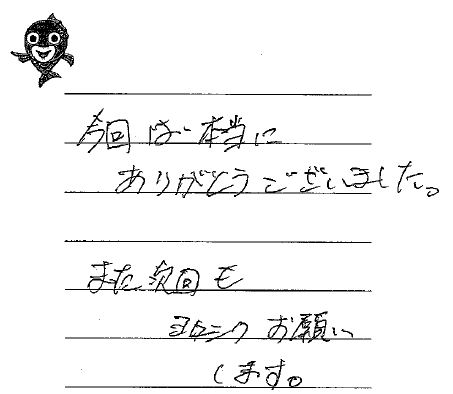 今回は本当に
ありがとうございました。
また次回も
ヨロシクお願い
します。